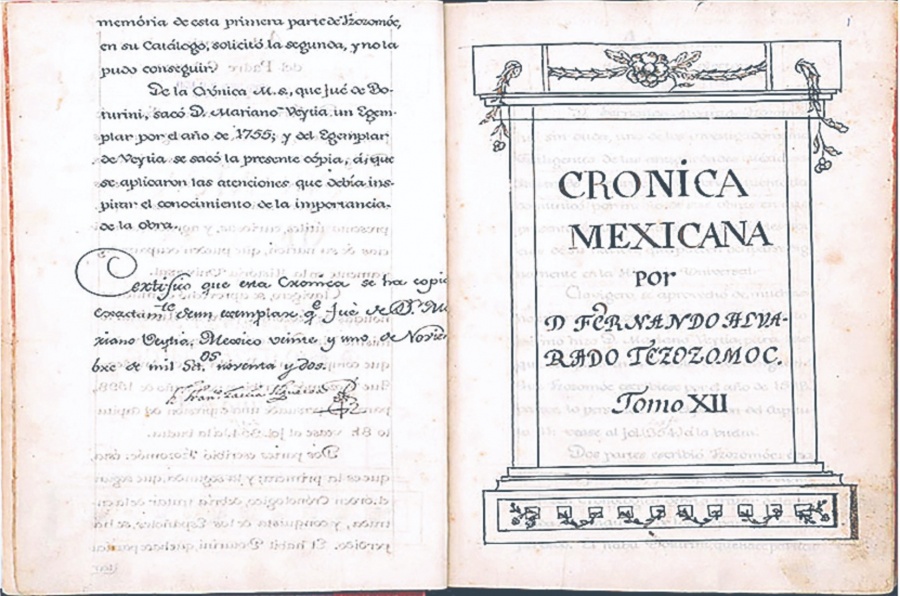 memória de esta primera parte de Tzozomóc,
en su Catálogo, solicitó la segunda, y no la
pudo conseguir.
De la Crónica M.s, que fué de Bo-
turini, sacó D. Mariano Veytia un Egem-
plar por el año de 1755; y del Egemplar
de Veytia se sacó la presente cópia, á que
se aplicaron las atenciones que debía ins-
pirar el conocimiento de la importancia
de la obra.
Certifico que esta Cronica se ha copia
exactam.te de un exemplar q.e fué de D.n Ma
riano Veytia. Mexico veinte y uno de Novie
bre de mil Set.os noventa y dos.
F. Fran.co García Figueroa
CRONICA
MEXICANA
por
D FERNANDO ALVA-
RADO TEZOZOMOC.
Tomo XII